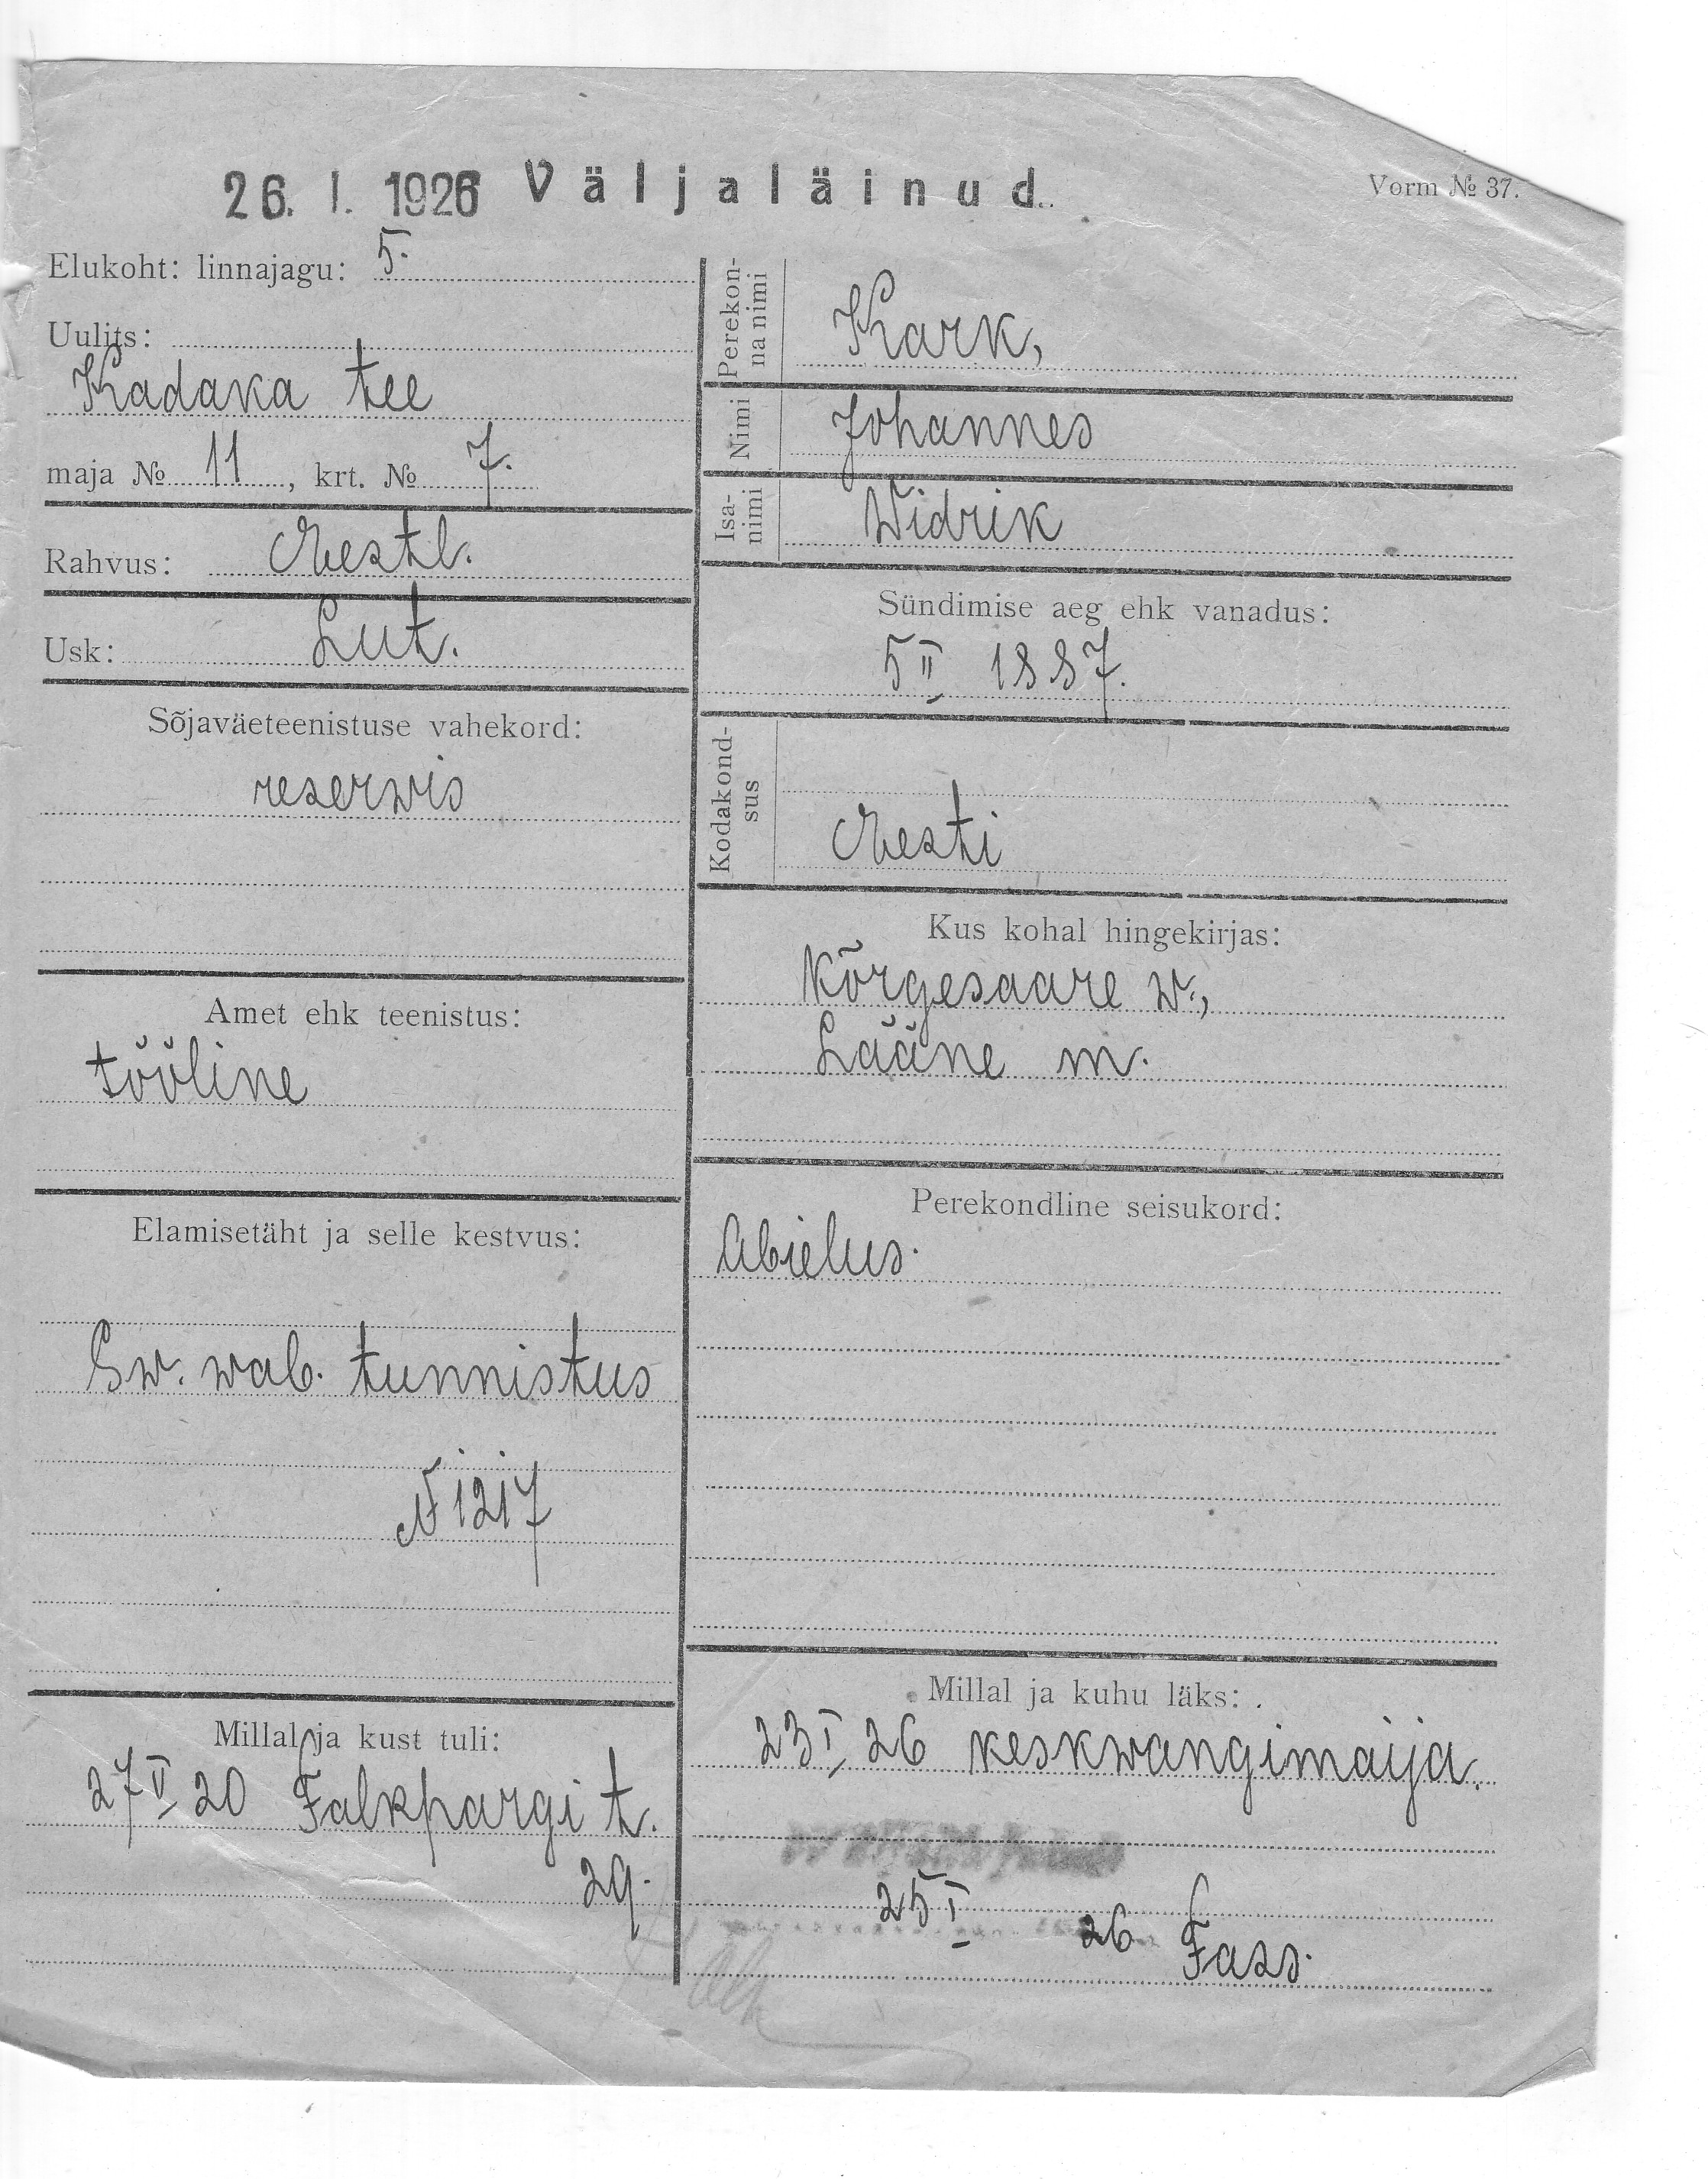 26. I. 1926 Väljaläinud.
Vorm № 37.
Elukoht: linnajagu: 5.
Uulits:
Kadaka tee
maja № 11, krt. № 7.
Rahvus: Eestl.
Usk: Lut.
Sõjaväeteenistuse vahekord:
reserwis
Amet ehk teenistus:
tööline
Elamisetäht ja selle kestvus:
Sw. wab. tunnistus
N 1217
Millal ja kust tuli:
27 V 20 Falkpargi t.
29.
Perekon-
na nimi
Kark,
Nimi
Johannes
Isa-
nimi
Widrik
Sündimise aeg ehk vanadus:
5 II 1887.
Kodakond-
sus
Eesti
Kus kohal hingekirjas:
Kõrgesaare w.,
Lääne m.
Perekondline seisukord:
Abielus.
Millal ja kuhu läks:
23 I 26 keskwangimaija.
25 I 26 Fass.